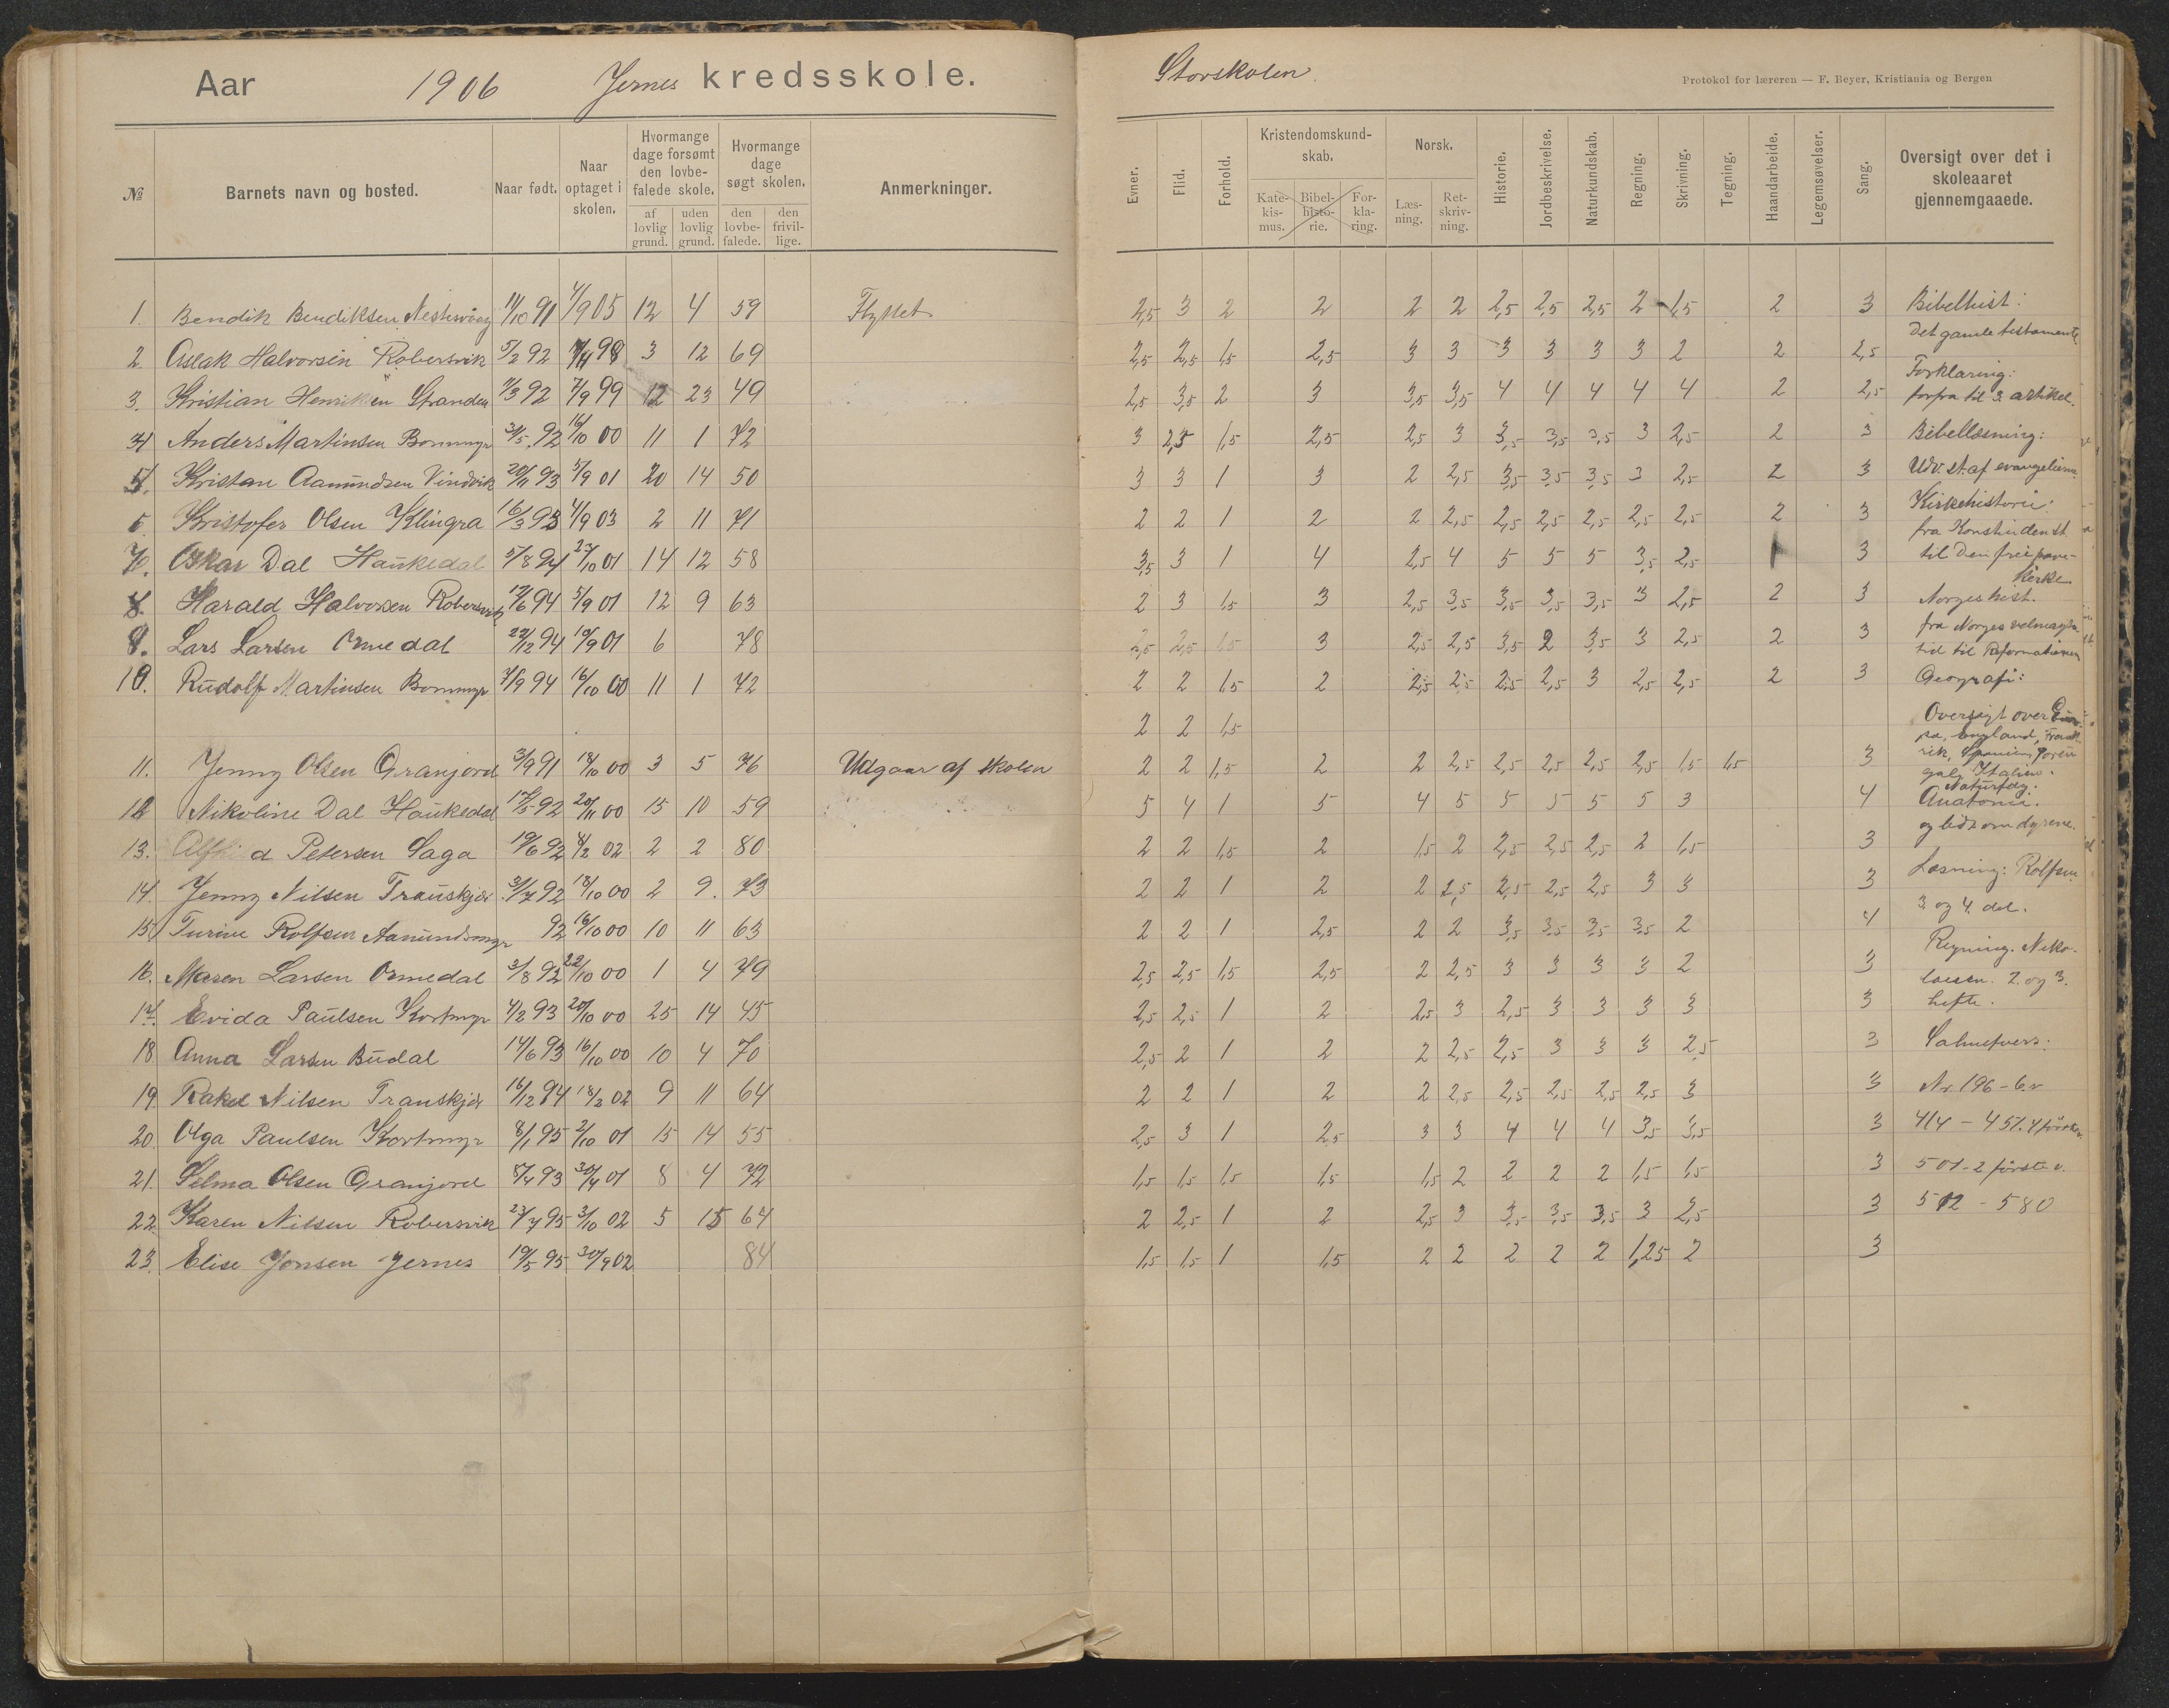 Aar 1906 Jernes kredsskole.
№ Barnets navn og bosted. Naar født. Naar optaget i skolen. Hvormange dage forsømt den lovbefalede skole. af lovlig grund. uden lovlig grund. Hvormange dage søgt skolen. den lovbefalede. den frivillige. Anmerkninger.
1. Bendik Bendiksen Nestesvaag 11/10 91 4/9 05 12 4 59 Flyttet
2. Aslak Halvorsen Robersvik 5/2 92 98 3 12 69
3. Kristian Henriksen Stranden 7/3 92 7/9 99 12 23 49
4 Anders Martinsen Bommyr 31/5 92 16/10 00 11 1 72
5. Kristan Aamundsen Vindvik 20/11 93 5/9 01 20 14 50
6. Kristofer Olsen Klingra 16/3 93 4/9 03 2 11 71
7. Oskar Dal Haukedal 5/8 94 23/10 01 14 12 58
8. Harald Halvorsen Robersvik 12/6 94 5/9 01 12 9 63
9. Lars Larsen Ormedal 22/12 94 19/9 01 6 78
10. Rudolf Martinsen Bommyr 7/9 94 16/10 00 11 1 72
11. Jenny Olsen Granjord 3/9 91 18/10 00 3 5 76 Udgaar af skolen
12 Nikoline Dal Haukedal 17/5 92 20/11 00 15 10 59
13. Petersen Saga 19/6 92 4/2 02 2 2 80
14. Jenny Nilsen Transkjær 31/7 92 18/10 00 2 9. 73
15. Turine Rolfsen Aamundsmyr 92 16/10 00 10 11 63
16. Maren Larsen Ormedal 3/8 92 22/10 00 1 4 79
17. Evida Paulsen Kortmyr 4/2 93 20/10 00 25 14 45
18 Anna Larsen Budal 14/6 93 16/10 00 10 4 70
19 Rakel Nilsen Transkjær 16/12 94 18/2 02 9 11 64
20 Olga Paulsen Kortmyr 8/1 95 2/10 01 15 14 55
21. Selma Olsen Granjord 8/4 93 30/4 01 8 4 72
22. Karen Nilsen Robersvik 23/7 95 3/10 02 5 15 64
23. Elise Jonsen Jernes 19/5 95 30/9 02 84
Storskolen.
Protokol for læreren — F. Beyer, Kristiania og Bergen
Evner. Flid. Forhold. Kristendomskundskab. Katekismus. Bibelhistorie. Forklaring. Norsk. Læsning. Retskrivning. Historie. Jordbeskrivelse. Naturkundskab. Regning. Skrivning. Tegning. Haandarbeide. Legemsøvelser. Sang. Oversigt over det i skoleaaret gjennemgaaede.
2,5 3 2 2 2 2 2,5 2,5 2,5 2 1,5 2 3
2,5 2,5 1,5 2,5 3 3 3 3 3 3 2 2 2,5
2,5 3,5 2 3 3,5 3,5 4 4 4 4 4 2 2,5
3 2,5 1,5 2,5 2,5 3 3,5 3,5 3,5 3 2,5 2 3
3 3 1 3 2 2,5 3,5 3,5 3,5 3 2,5 2 3
2 2 1 2 2 2,5 2,5 2,5 2,5 2,5 2,5 2 3
3,5 3 1 4 2,5 4 5 5 5 3,5 2,5 1 3
2 3 1,5 3 2,5 3,5 3,5 3,5 3,5 3 2,5 2 3
2,5 2,5 1,5 3 2,5 2,5 3,5 2 3,5 3 2,5 2 3
2 2 1,5 2 2,5 2,5 2,5 2,5 3 2,5 2,5 2 3
2 2 1,5
2 2 1,5 2 2 2,5 2,5 2,5 2,5 2,5 1,5 1,5 3
5 4 1 5 4 5 5 5 5 5 3 4
2 2 1,5 2 1,5 2 2,5 2,5 2,5 2 1,5 3
2 2 1 2 2 2,5 2,5 2,5 2,5 3 3 3
2 2 1 2,5 2 2 3,5 3,5 3,5 3,5 2 4
2,5 2,5 1,5 2,5 2 2,5 3 3 3 3 2 3
2,5 2,5 1 2 2,5 3 2,5 3 3 3 3 3
2,5 2 1 2 2 2,5 2,5 3 3 3 2,5 3
2 2 1 2 2 2,5 2,5 2,5 2,5 2,5 3 3
2,5 3 1 2,5 3 3 4 4 4 3,5 3,5 3
1,5 1,5 1,5 1,5 1,5 2 2 2 2 1,5 1,5 3
2 2,5 1 2 2,5 3 3,5 3,5 3,5 3 2,5 3
1,5 1,5 1 1,5 2 2 2 2 2 1,25 2 3
Bibelhist:
Det gamle testamente.
Forklaring:
forfra til 3. artikel.
Bibellæsning:
Udv. st. af evangelierne
Kirkehistorie:
fra Konstin den st.
til Den frie
kirke
Norgeshist.
fra Norges velmagts
tid til Reformationen
Geografi:
Oversigt over Euro-
pa, England, Frank
rik, Spanien, Portu
gal, Italien.
Naturfag:
Anatomi.
og lidt om dyrene.
Læsning: Rolfsen
3. og 4. del.
Regning. Niko-
laisen. 2. og 3.
hefte.
Salmevers:
Nr. 196 - 6. v
414 - 451. 4 første v.
501 - 2 første v.
512 - 580